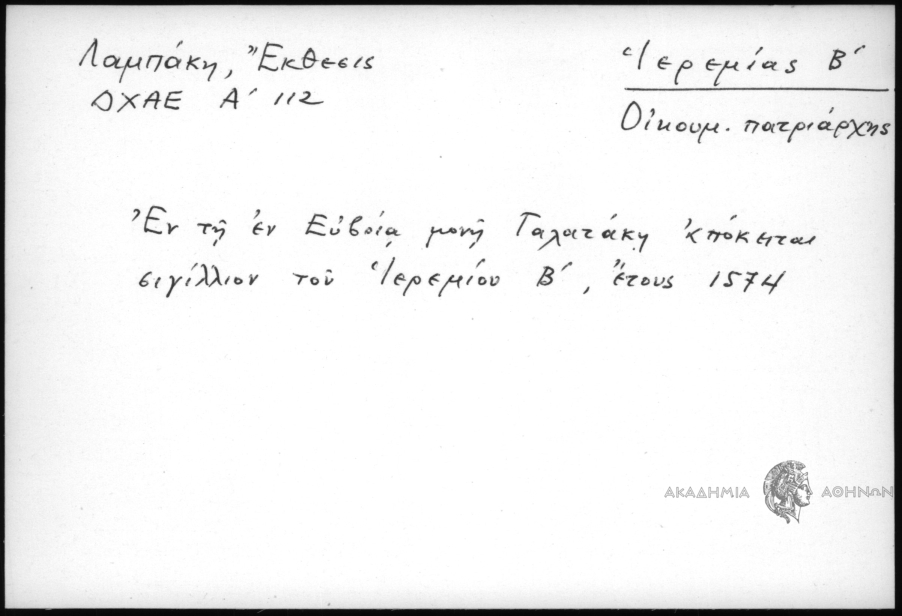 Λαμπάκη, Ἔκθεσις
ΔΧΑΕ Α΄ 112
Ἱερεμίας Β΄
Οἰκουμ. πατριάρχης
Ἐν τῇ ἐν Εὐβοίᾳ μονῇ Γαλατάκη ἀπόκειται
σιγίλλιον τοῦ Ἱερεμίου Β΄, ἔτους 1574
ΑΚΑΔΗΜΙΑ ΑΘΗΝΩΝ